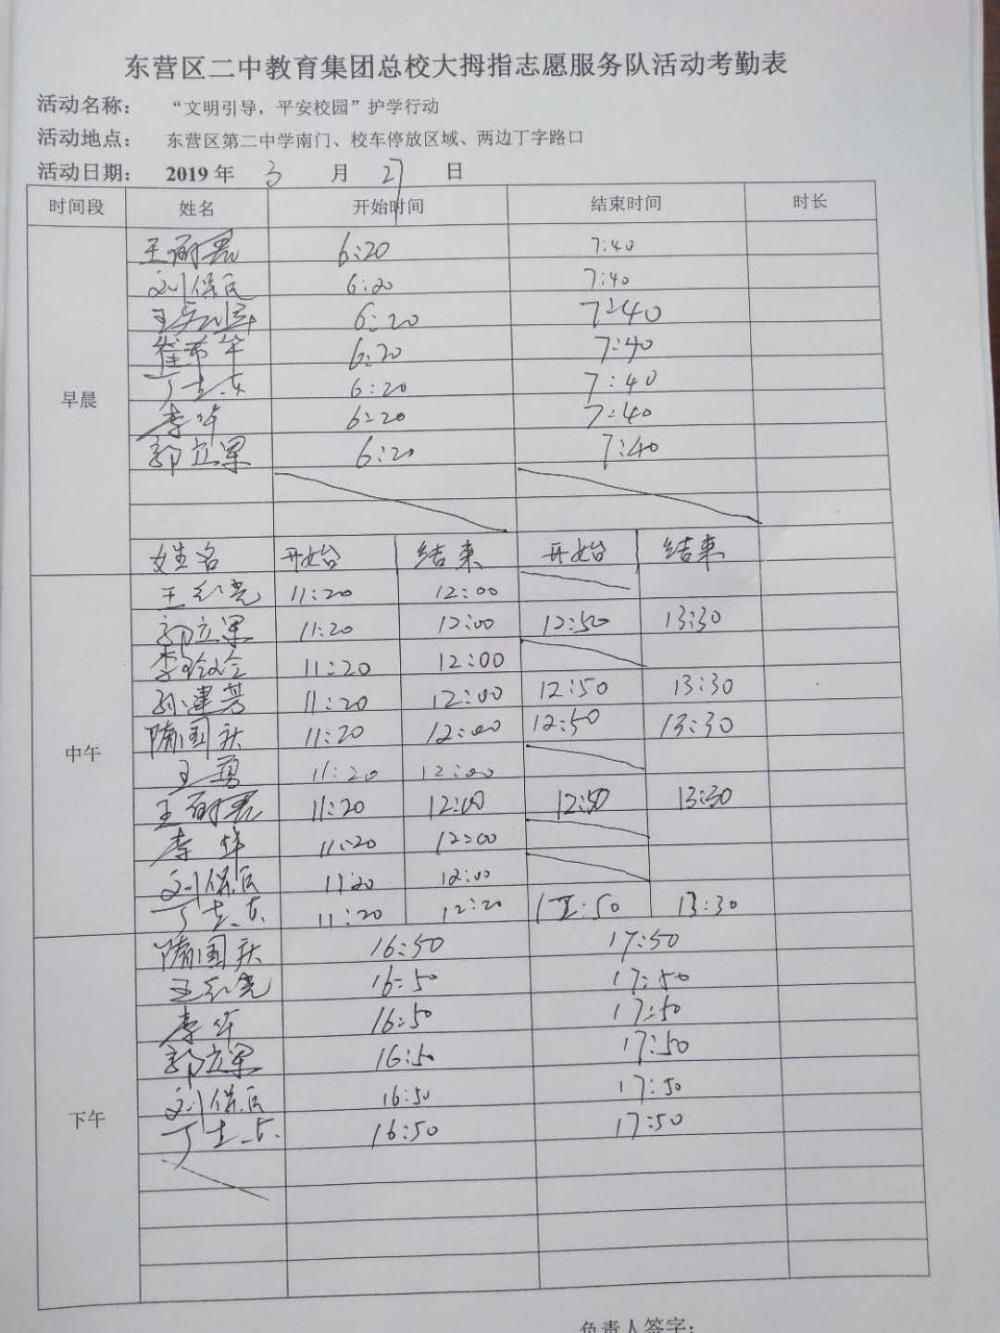 东营区二中教育集团总校大拇指志愿服务队活动考勤表
活动名称： “文明引导，平安校园”护学行动
活动地点： 东营区第二中学南门、校车停放区域、两边丁字路口
活动日期： 2019 年 3 月 27 日
时间段 姓名 开始时间 结束时间 时长
早晨
6:20 7:40
刘保民 6:20 7:40
6:20 7:40
崔希军 6:20 7:40
丁志东 6:20 7:40
李华 6:20 7:40
郭立军 6:20 7:40
姓名 开始 结束 开始 结束
中午
王红亮 11:20 12:00
郭立军 11:20 12:00 12:50 13:30
李玲玲 11:20 12:00
孙建芳 11:20 12:00 12:50 13:30
隋国庆 11:20 12:00 12:50 13:30
王勇 11:20 12:00
11:20 12:00 12:50 13:30
李华 11:20 12:00
刘保民 11:20 12:00
丁志东 11:20 12:20 12:50 13:30
下午
隋国庆 16:50 17:50
王红亮 16:50 17:50
李华 16:50 17:50
郭立军 16:50 17:50
刘保民 16:50 17:50
丁志东 16:50 17:50
负责人签字：